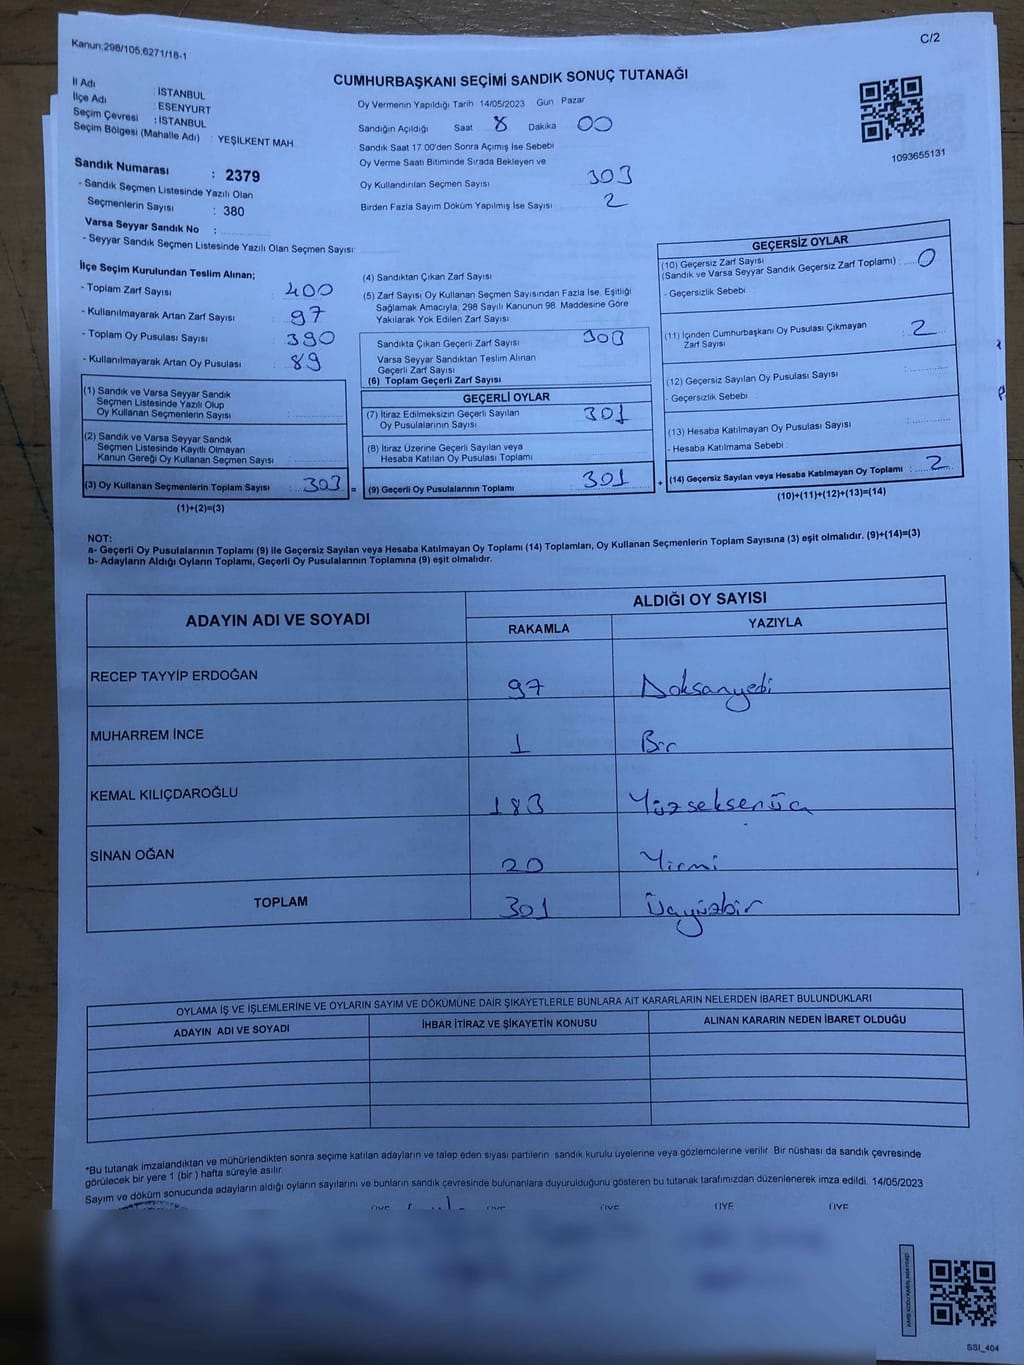 Kanun:298/105,6271/18-1
C/2
CUMHURBAŞKANI SEÇİMİ SANDIK SONUÇ TUTANAĞI
İl Adı : İSTANBUL
İlçe Adı : ESENYURT
Seçim Çevresi : İSTANBUL
Seçim Bölgesi (Mahalle Adı) : YEŞİLKENT MAH.
Sandık Numarası : 2379
- Sandık Seçmen Listesinde Yazılı Olan
Seçmenlerin Sayısı : 380
Varsa Seyyar Sandık No :
- Seyyar Sandık Seçmen Listesinde Yazılı Olan Seçmen Sayısı:
Oy Vermenin Yapıldığı Tarih 14/05/2023 Gün Pazar
Sandığın Açıldığı Saat 8 Dakika 00
Sandık Saat 17.00'den Sonra Açımış İse Sebebi
Oy Verme Saati Bitiminde Sırada Bekleyen ve
Oy Kullandırılan Seçmen Sayısı 303
Birden Fazla Sayım Döküm Yapılmış İse Sayısı 2
1093655131
İlçe Seçim Kurulundan Teslim Alınan;
- Toplam Zarf Sayısı : 400
- Kullanılmayarak Artan Zarf Sayısı : 97
- Toplam Oy Pusulası Sayısı : 390
- Kullanılmayarak Artan Oy Pusulası : 89
(1) Sandık ve Varsa Seyyar Sandık
Seçmen Listesinde Yazılı Olup
Oy Kullanan Seçmenlerin Sayısı :
(2) Sandık ve Varsa Seyyar Sandık
Seçmen Listesinde Kayıtlı Olmayan
Kanun Gereği Oy Kullanan Seçmen Sayısı :
(3) Oy Kullanan Seçmenlerin Toplam Sayısı : 303 =
(1)+(2)=(3)
(4) Sandıktan Çıkan Zarf Sayısı
(5) Zarf Sayısı Oy Kullanan Seçmen Sayısından Fazla İse, Eşitliği
Sağlamak Amacıyla; 298 Sayılı Kanunun 98. Maddesine Göre
Yakılarak Yok Edilen Zarf Sayısı
Sandıkta Çıkan Geçerli Zarf Sayısı 303
Varsa Seyyar Sandıktan Teslim Alınan
Geçerli Zarf Sayısı
(6) Toplam Geçerli Zarf Sayısı
GEÇERLİ OYLAR
(7) İtiraz Edilmeksizin Geçerli Sayılan
Oy Pusulalarının Sayısı 301
(8) İtiraz Üzerine Geçerli Sayılan veya
Hesaba Katılan Oy Pusulası Toplamı
(9) Geçerli Oy Pusulalarının Toplamı 301 +
GEÇERSİZ OYLAR
(10) Geçersiz Zarf Sayısı
(Sandık ve Varsa Seyyar Sandık Geçersiz Zarf Toplamı) : 0
- Geçersizlik Sebebi
(11) İçinden Cumhurbaşkanı Oy Pusulası Çıkmayan
Zarf Sayısı : 2
(12) Geçersiz Sayılan Oy Pusulası Sayısı :
- Geçersizlik Sebebi :
(13) Hesaba Katılmayan Oy Pusulası Sayısı :
- Hesaba Katılmama Sebebi :
(14) Geçersiz Sayılan veya Hesaba Katılmayan Oy Toplamı : 2
(10)+(11)+(12)+(13)=(14)
NOT:
a- Geçerli Oy Pusulalarının Toplamı (9) ile Geçersiz Sayılan veya Hesaba Katılmayan Oy Toplamı (14) Toplamları, Oy Kullanan Seçmenlerin Toplam Sayısına (3) eşit olmalıdır. (9)+(14)=(3)
b- Adayların Aldığı Oyların Toplamı, Geçerli Oy Pusulalarının Toplamına (9) eşit olmalıdır.
ADAYIN ADI VE SOYADI
ALDIĞI OY SAYISI
RAKAMLA YAZIYLA
RECEP TAYYİP ERDOĞAN 97 Doksanyedi
MUHARREM İNCE 1 Bir
KEMAL KILIÇDAROĞLU 183 Yüzseksenüç
SİNAN OĞAN 20 Yirmi
TOPLAM 301 Üçyüzbir
OYLAMA İŞ VE İŞLEMLERİNE VE OYLARIN SAYIM VE DÖKÜMÜNE DAİR ŞİKAYETLERLE BUNLARA AİT KARARLARIN NELERDEN İBARET BULUNDUKLARI
ADAYIN ADI VE SOYADI İHBAR İTİRAZ VE ŞİKAYETİN KONUSU ALINAN KARARIN NEDEN İBARET OLDUĞU
*Bu tutanak imzalandıktan ve mühürlendikten sonra seçime katılan adayların ve talep eden siyasi partilerin sandık kurulu üyelerine veya gözlemcilerine verilir. Bir nüshası da sandık çevresinde
görülecek bir yere 1 (bir ) hafta süreyle asılır.
Sayım ve döküm sonucunda adayların aldığı oyların sayılarını ve bunların sandık çevresinde bulunanlara duyurulduğunu gösteren bu tutanak tarafımızdan düzenlenerek imza edildi. 14/05/2023
ÜYE ÜYE ÜYE ÜYE ÜYE
SSI_404